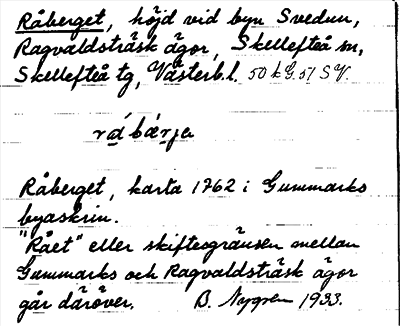 Råberget, höjd vid byn Svedun,
Ragvaldsträsk ägor, Skellefteå sn,
Skellefteå tg, Västerb.l. 50 k G. 51 SV.
rá bǽrja
Råberget, karta 1762 i Gummarks
byaskrin.
"Rået" eller skiftesgränsen mellan
Gummarks och Ragvaldsträsk ägor
går däröver. B. Nygren 1933.